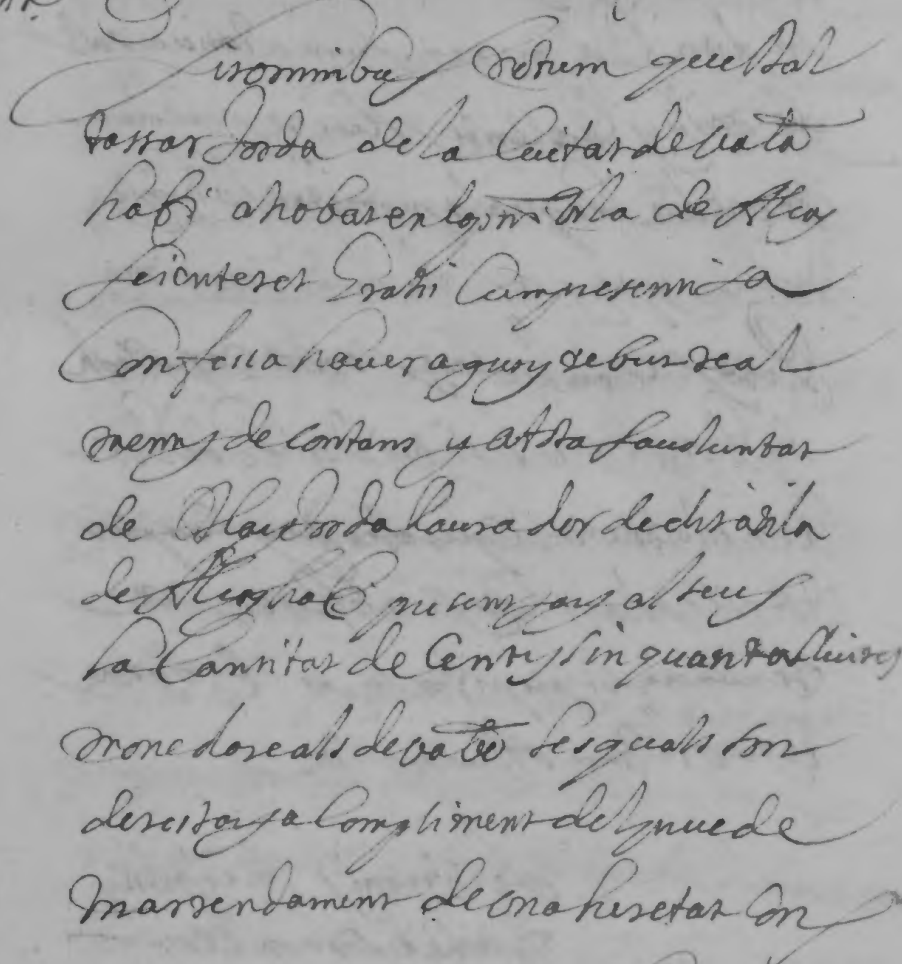 Sit omnibus notum que Bal
tassar Jorda de la Ciutat de vala
habi atrobat en la pnt vila de Alcoy
scienter et Gratis cum presenti sa
Confessa haver agut y rebut real
ment y de contans y a tota sa voluntat
de Jorda laurador de dita vila
de Alcoy habi present y als seus
la Cantitat de Cent y sinquanta lliures
moneda reals de vala les quals son
de resta y a Compliment del preu de
marrendament de una heretat en